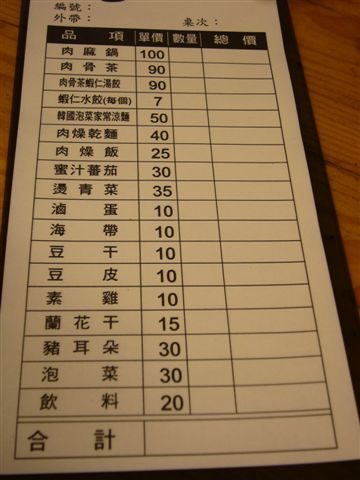 編號：
外帶： 桌次：
品項 單價 數量 總價
肉麻鍋 100
肉骨茶 90
肉骨茶蝦仁湯餃 90
蝦仁水餃(每個) 7
韓國泡菜家常涼麵 50
肉燥乾麵 40
肉燥飯 25
蜜汁蕃茄 30
燙青菜 35
滷蛋 10
海帶 10
豆干 10
豆皮 10
素雞 10
蘭花干 15
豬耳朵 30
泡菜 30
飲料 20
合計